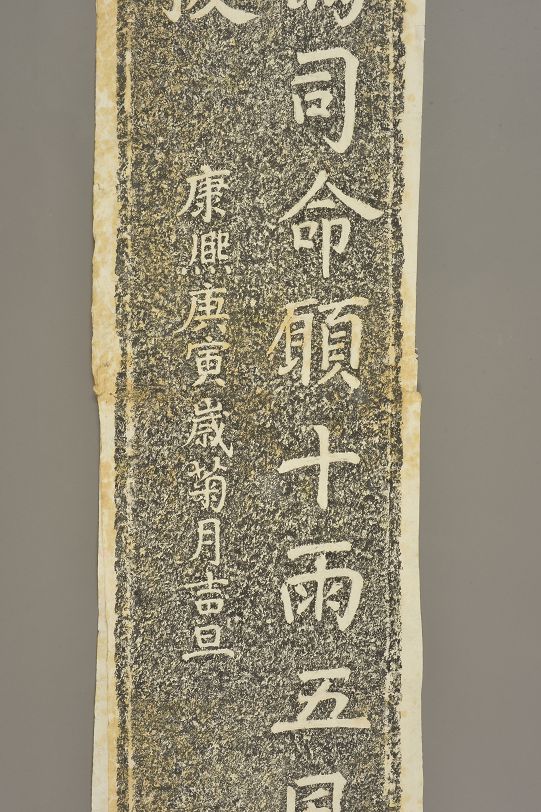 司命願十雨五
康熙庚寅歲菊月吉旦